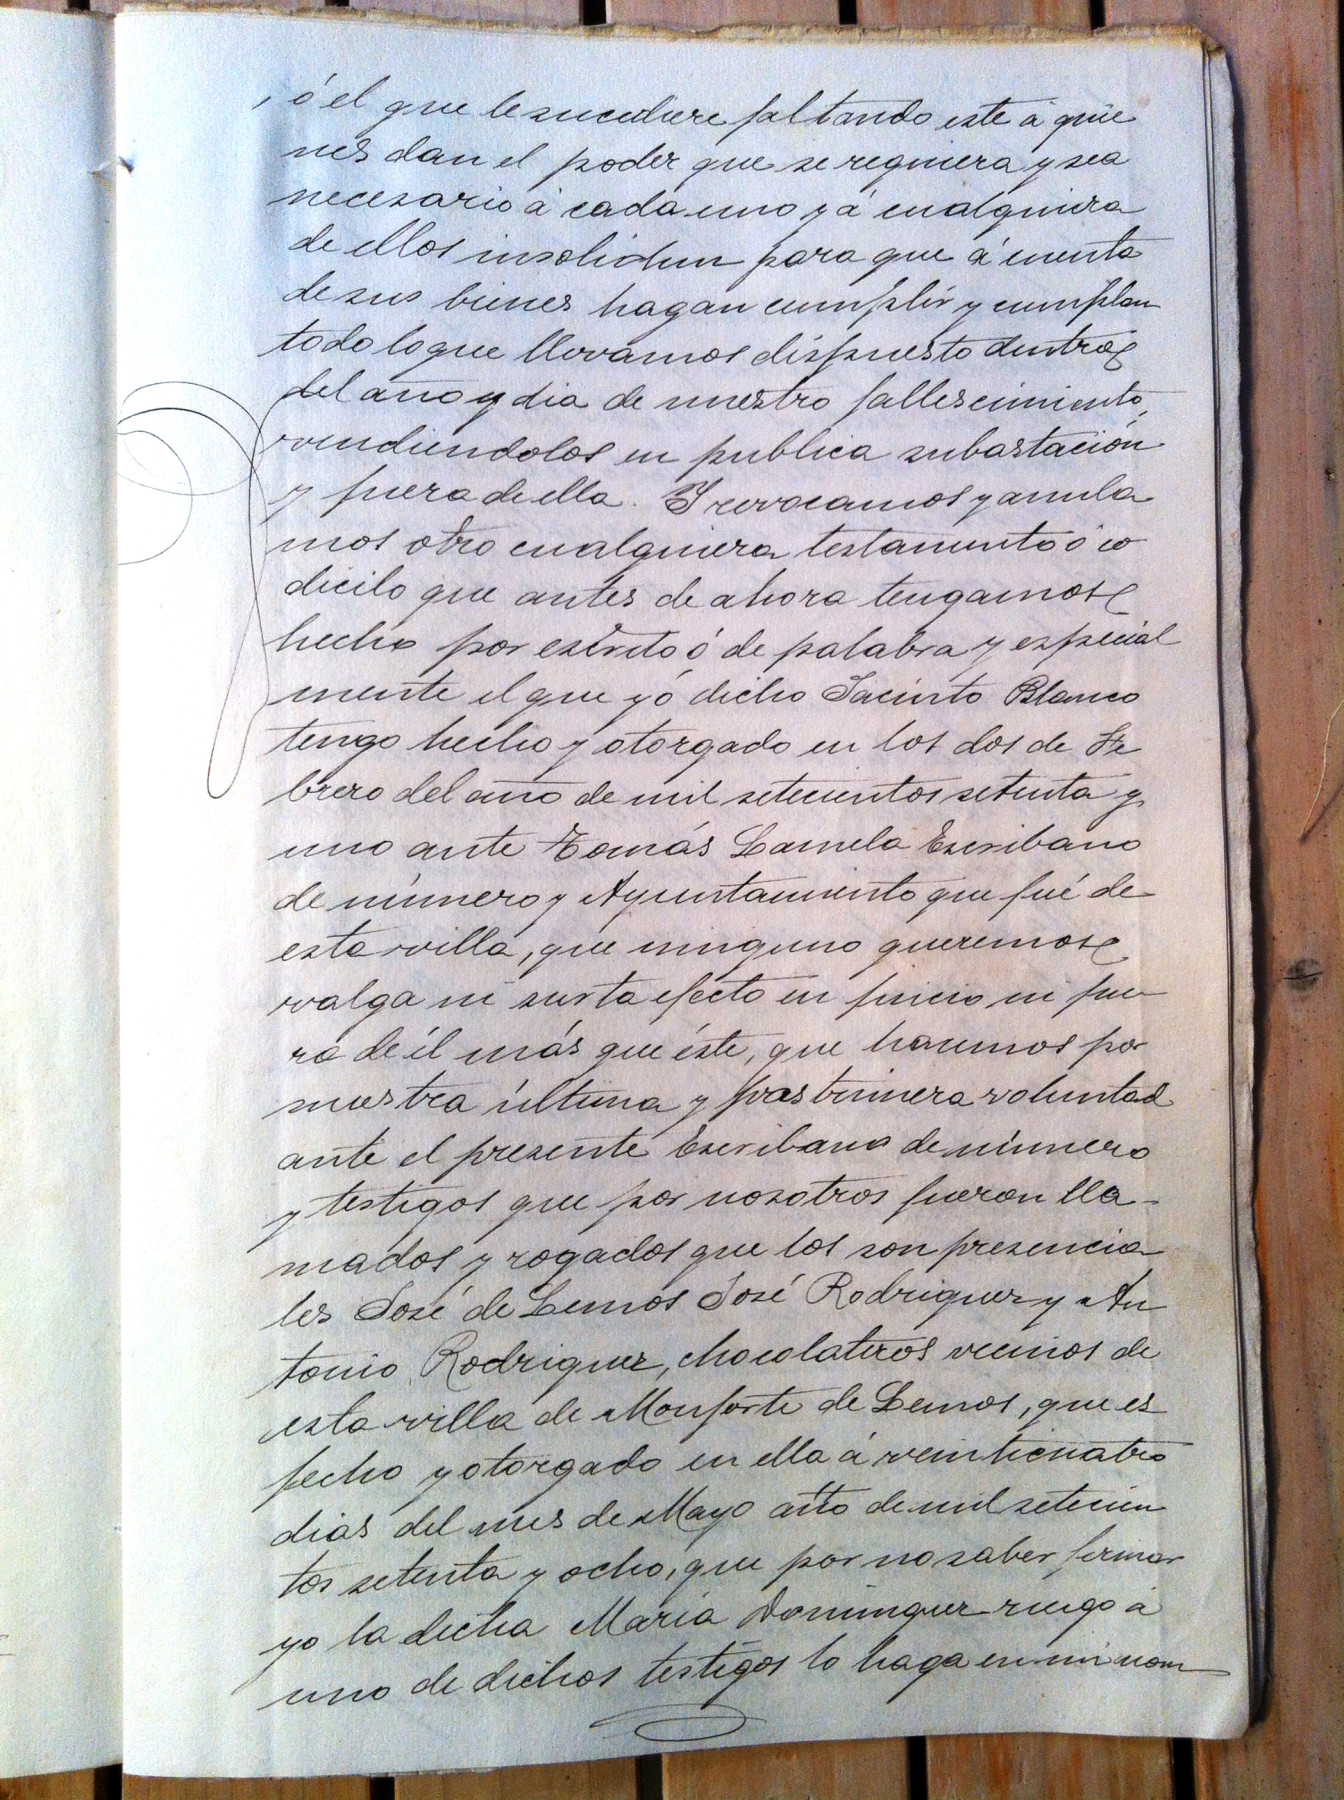 , ó el que le sucediere faltando este á quie
nes dan el poder que se requiera y sea
necesario á cada uno y á cualquiera
de ellos insolidun para que á cuenta
de sus bienes hagan cumplir y cumplan
todo lo que llevamos dispuesto dentro
del año y dia de nuestro fallescimiento,
vendiendolos en publica subastación
y fuera de ella. Y revocamos y anula
mos otro cualquiera testamento ó co
dicilo que antes de ahora tengamos
hecho por escrito ó de palabra y especial
mente el que yó dicho Jacinto Blanco
tengo hecho y otorgado en los dos de Fe
brero del año de mil setecientos setenta y
uno ante Tomás Lamela Escribano
de número y Ayuntamiento que fué de
esta villa, que ninguno queremos
valga ni surta efecto en juicio ni fue
ra de él más que éste, que hacemos por
nuestra última y postrimera voluntad
ante el presente Escribano de número
y testigos que por nosotros fueron lla-
mados y rogados que los son presencia
les José de Lemos José Rodriguez y An
tonio Rodriguez, chocolateros vecinos de
esta villa de Monforte de Lemos, que es
fecho y otorgado en ella á veinticuatro
dias del mes de Mayo año de mil setecien
tos setenta y ocho, que por no saber firmar
yo la dicha Maria Dominguez ruego á
uno de dichos testigos lo haga en mi nom